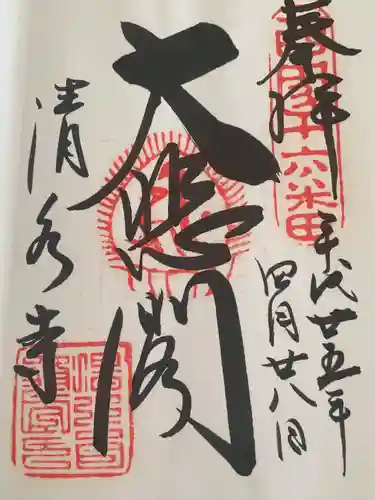 奉拝
平成廿五年
四月廿八日
大悲閣
清水寺